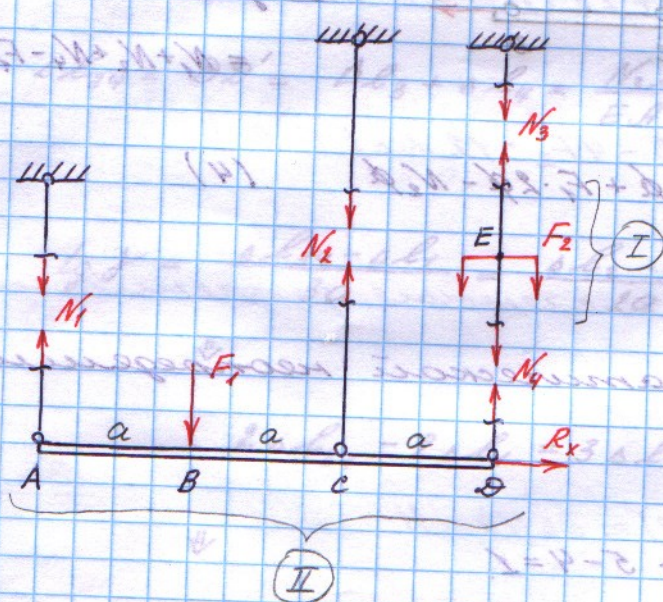 N₃
N₂
E
F₂
I
N₁
F₁
N₄
a
a
a
Rx
A
B
C
D
II